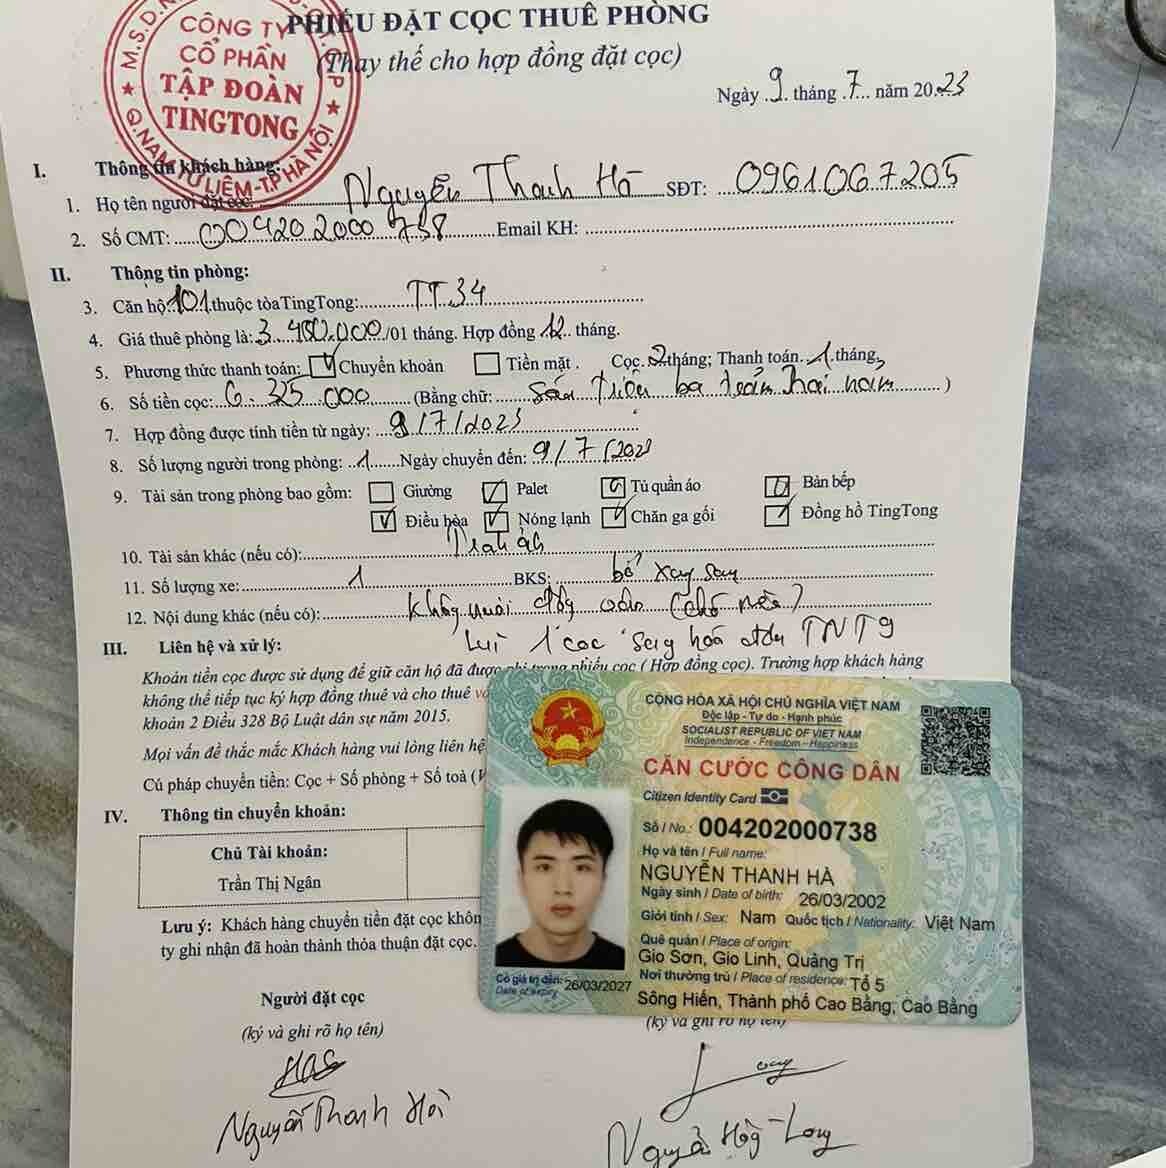 CÔNG TY
CỔ PHẦN
TẬP ĐOÀN
TINGTONG
M.S.D.N
Q.NAM TỪ LIÊM-T.P HÀ NỘI
PHIẾU ĐẶT CỌC THUÊ PHÒNG
(Thay thế cho hợp đồng đặt cọc)
Ngày 9 tháng 7 năm 2023
I. Thông tin khách hàng:
1. Họ tên người đặt cọc: Nguyễn Thanh Hà SĐT: 0961067205
2. Số CMT: 004202000738 Email KH:
II. Thông tin phòng:
3. Căn hộ: 101 thuộc tòa TingTong: TT34
4. Giá thuê phòng là: 3.400.000/01 tháng. Hợp đồng 12 tháng.
5. Phương thức thanh toán: Chuyển khoản Tiền mặt . Cọc. 2 tháng; Thanh toán. 1 tháng,
6. Số tiền cọc: 6.325.000 (Bằng chữ: sáu triệu ba trăm hai năm )
7. Hợp đồng được tính tiền từ ngày: 9/7/2023
8. Số lượng người trong phòng: 1 Ngày chuyển đến: 9/7/2023
9. Tài sản trong phòng bao gồm: Giường Palet Tủ quần áo Bàn bếp
Điều hòa Nóng lạnh Chăn ga gối Đồng hồ TingTong
10. Tài sản khác (nếu có):
11. Số lượng xe: 1 BKS: bổ xay say
12. Nội dung khác (nếu có): Không nuôi động vật (chó mèo)
Lùi 1 cọc sang hoá đơn TNT9
III. Liên hệ và xử lý:
Khoản tiền cọc được sử dụng để giữ căn hộ đã được ghi trong phiếu cọc ( Hợp đồng cọc). Trường hợp khách hàng
không thể tiếp tục ký hợp đồng thuê và cho thuê
khoản 2 Điều 328 Bộ Luật dân sự năm 2015.
Mọi vấn đề thắc mắc Khách hàng vui lòng liên hệ
Cú pháp chuyển tiền: Cọc + Số phòng + Số toà
IV. Thông tin chuyển khoản:
Chủ Tài khoản:
Trần Thị Ngân
Lưu ý: Khách hàng chuyển tiền đặt cọc
ty ghi nhận đã hoàn thành thỏa thuận đặt cọc.
CỘNG HÒA XÃ HỘI CHỦ NGHĨA VIỆT NAM
Độc lập - Tự do - Hạnh phúc
SOCIALIST REPUBLIC OF VIET NAM
Independence - Freedom - Happiness
CĂN CƯỚC CÔNG DÂN
Citizen Identity Card
Số / No.: 004202000738
Họ và tên / Full name:
NGUYỄN THANH HÀ
Ngày sinh / Date of birth: 26/03/2002
Giới tính / Sex: Nam Quốc tịch / Nationality: Việt Nam
Quê quán / Place of origin:
Gio Sơn, Gio Linh, Quảng Trị
Nơi thường trú / Place of residence: Tổ 5
Sông Hiến, Thành phố Cao Bằng, Cao Bằng
Có giá trị đến: 26/03/2027
Date of expiry
Người đặt cọc
(ký và ghi rõ họ tên)
(ký và ghi rõ họ tên)
Nguyễn Thanh Hà
Long